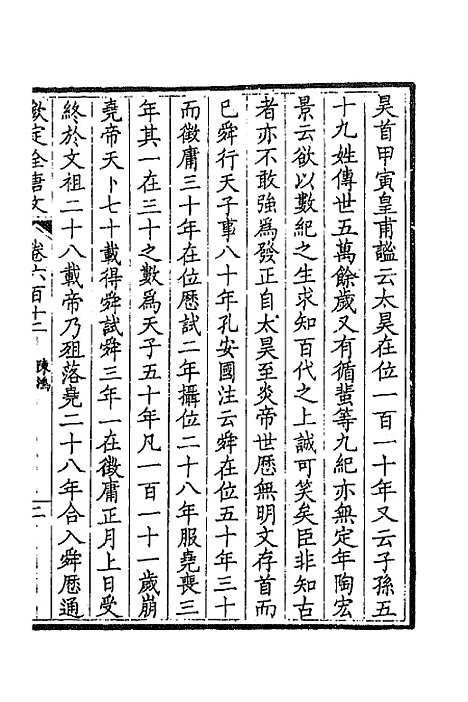 昊首甲寅皇甫謐云太昊在位一百一十年又云子孫五
十九姓傳世五萬餘歲又有循蜚等九紀亦無定年陶宏
景云欲以數紀之生求知百代之上誠可笑矣臣非知古
者亦不敢強爲發正自太昊至炎帝世歷無明文存首而
已舜行天子事八十年孔安國注云舜在位五十年三十
而徵庸三十年在位歷試二年攝位二十八年服堯喪三
年其一在三十之數爲天子五十年凡一百一十一歲崩
堯帝天卜七十載得舜試舜三年一在徵庸正月上日受
終於文祖二十八載帝乃殂落堯二十八年合入舜歷通
欽定全唐文 卷六百十二 陳鴻 二